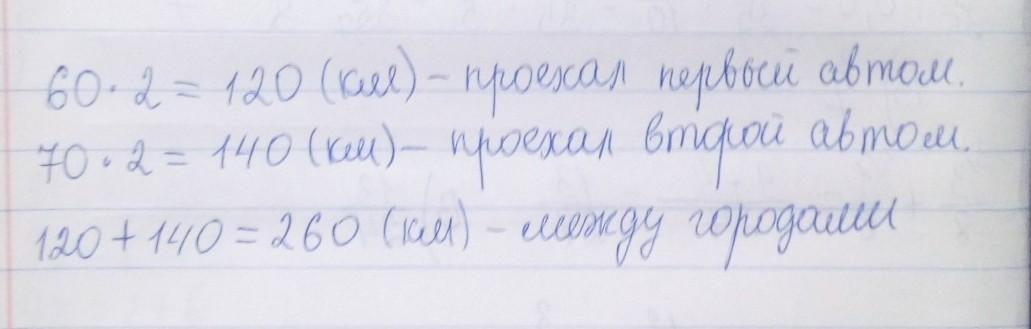 60·2=120 (км) – проехал первый автом.
70·2=140 (км) – проехал второй автом.
120+140=260 (км) – между городами